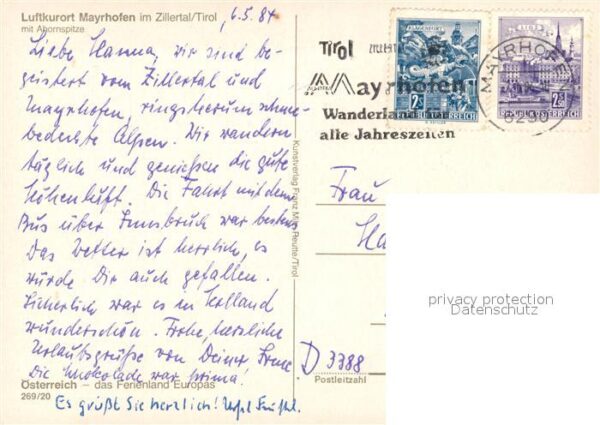 Luftkurort Mayrhofen im Zillertal/Tirol
mit Ahornspitze
6.5.84
Liebe Hanna, wir sind be-
geistert vom Zillertal und
Mayrhofen, ringsherum schnee-
bedeckte Alpen. Wir wandern
täglich und genießen die gute
Höhenluft. Die Fahrt mit dem
Bus über Innsbruck war bestens
Das Wetter ist herrlich, es
würde Dir auch gefallen.
Sicherlich war es in Holland
wunderschön. Frohe, herzliche
Urlaubsgrüße von Deiner
Die Schokolade war prima!
Österreich – das Ferienland Europas
269/20
Es grüßt Sie herzlich!
Kunstverlag Franz Reutte/Tirol
Tirol
Mayrhofen
Wanderland
alle Jahreszeiten
KLAGENFURT
2
REPUBLIK ÖSTERREICH
LINZ
REPUBLIK ÖSTERREICH
MAYRHOF
Frau
Ha
D 3388
Postleitzahl
privacy protection
Datenschutz